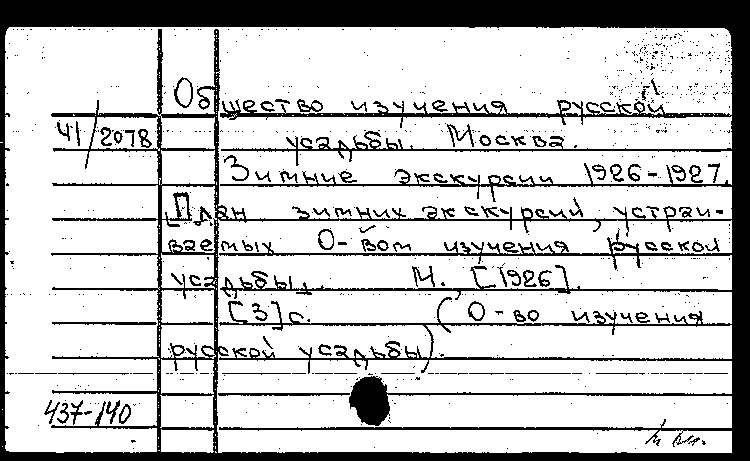 Общество изучения русской
Ч1/2078 усадьбы. Москва.
Зимние экскурсии 1926-1927.
[План зимних экскурсий, устраи-
ваемых О-вом изучения русской
усадьбы]. М., [1926].
[3]с. (О-во изучения
русской усадьбы).
437-140